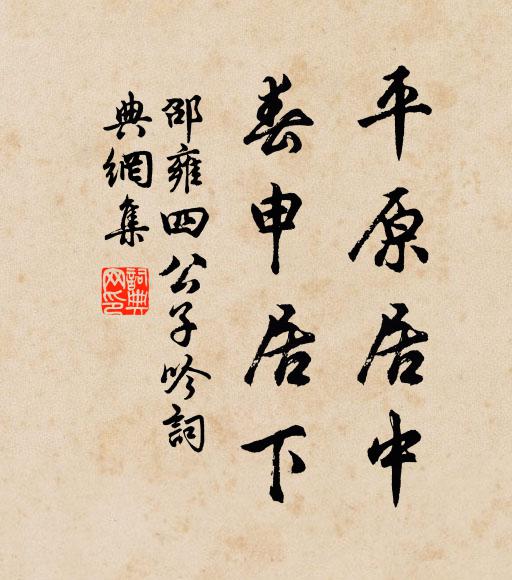 平原居中
春申居下
邵雍四公子吟詞
典網集
詞典網印